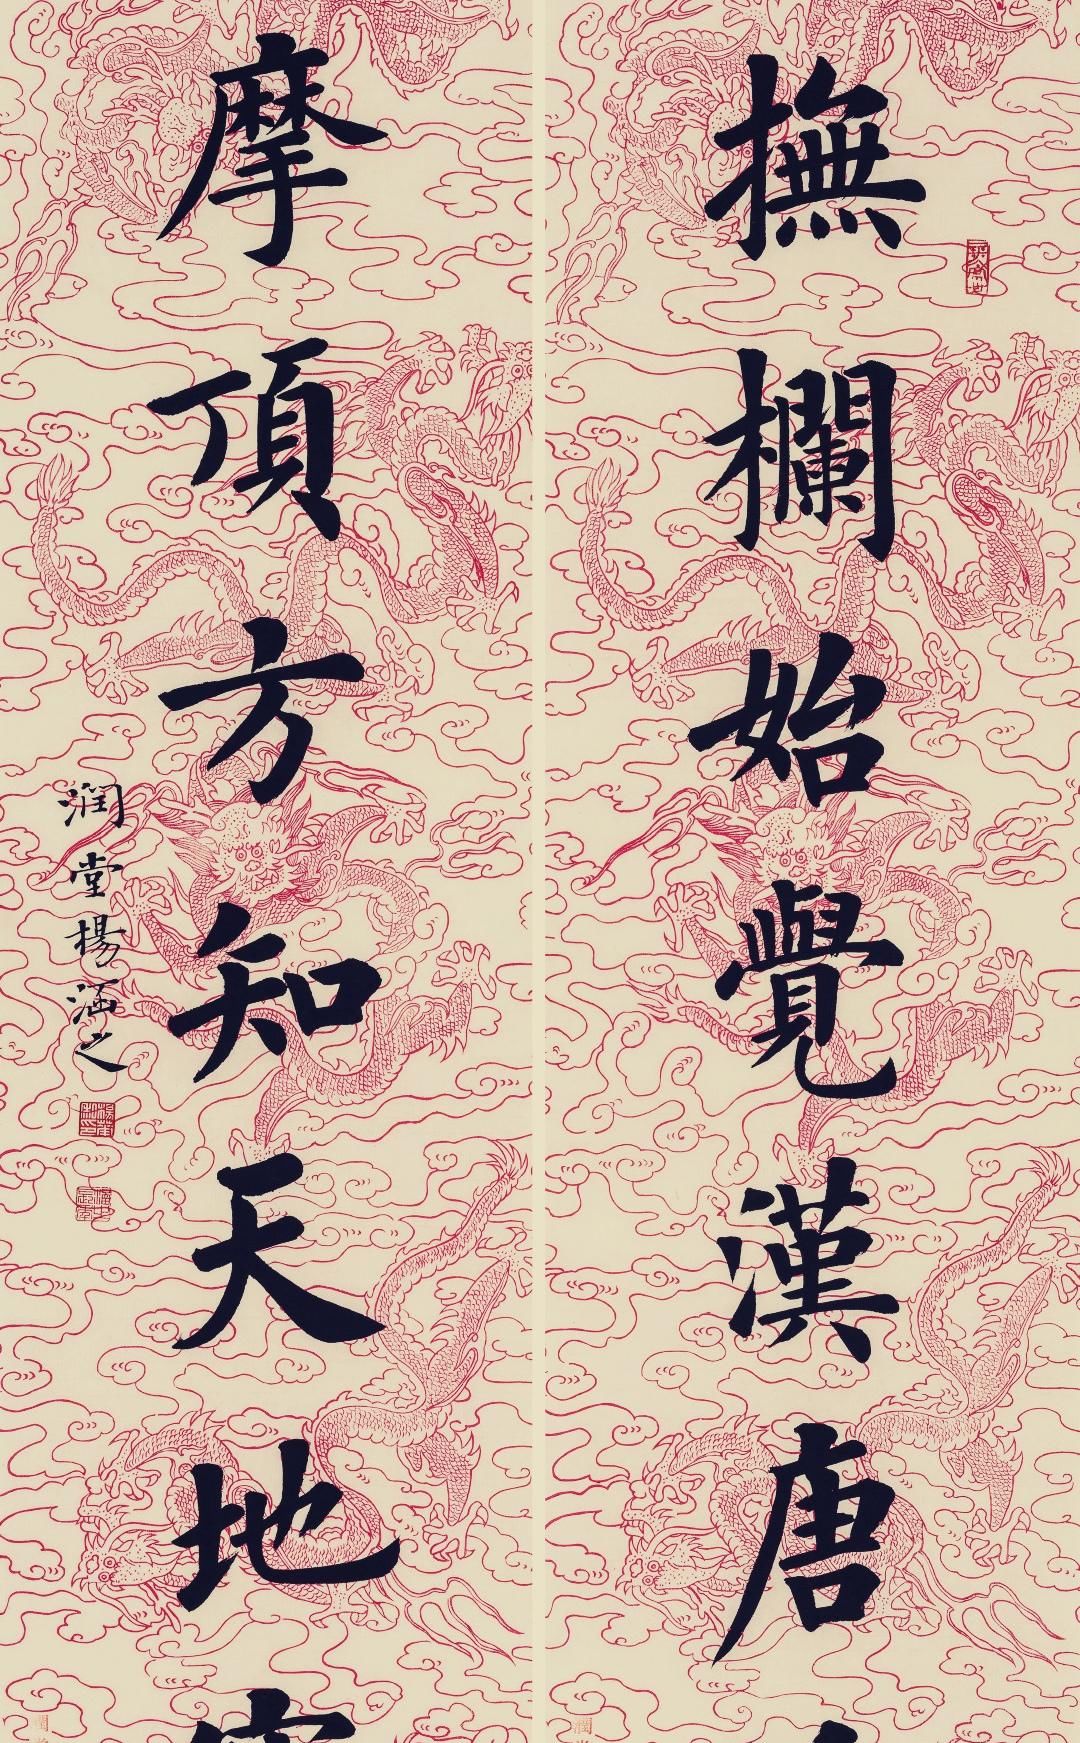 撫欄始覺漢唐
摩頂方知天地
潤堂楊涵之